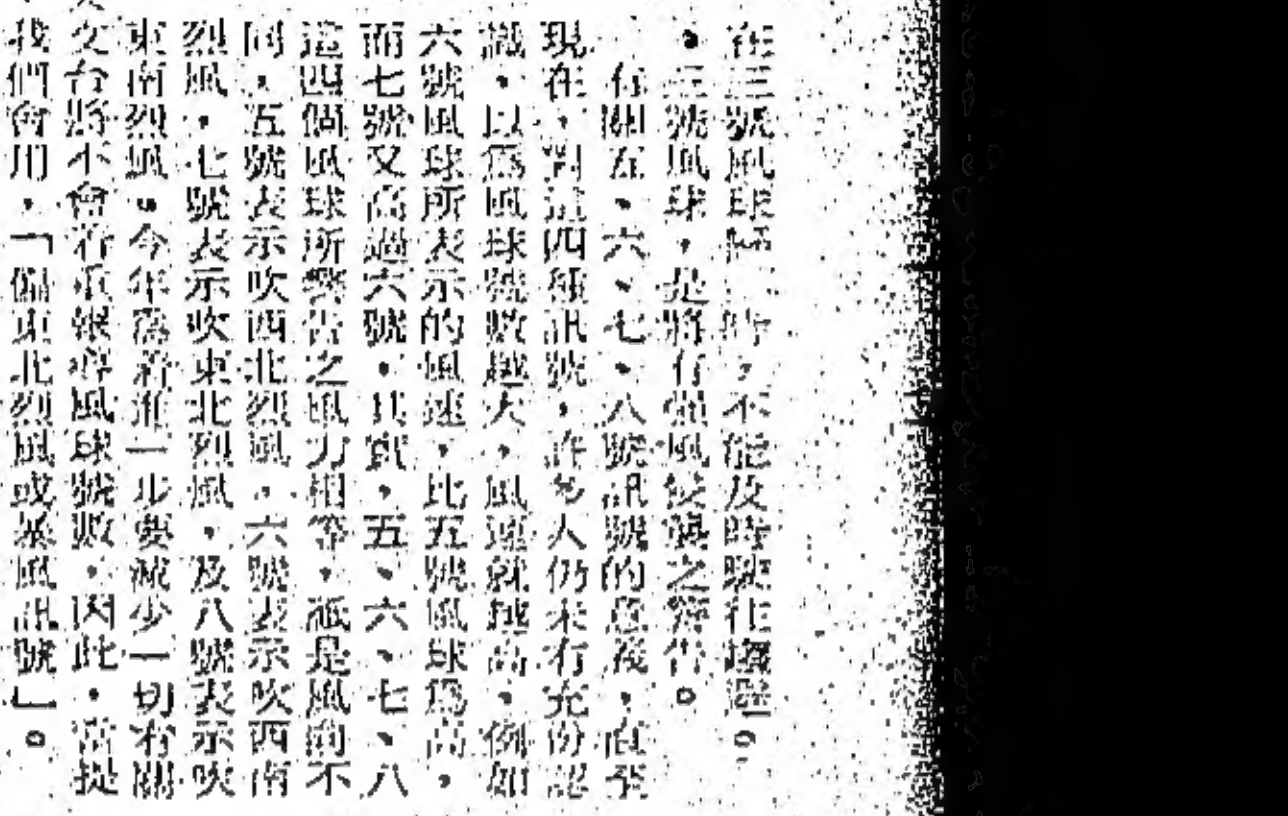 在三號風球時，不能及時駛往避。
。三號風球，是將有強風侵襲之警告。
有關五、六、七、八號訊號的意義，直至
現在，對這四種訊號，許多人仍未有充份認
識，以爲風球號數越大，風速就越高，例如
六號風球所表示的風速，比五號風球爲高，
而七號又高過六號，其實，五、六、七、八
這四個風球所警告之風力相等，祗是風向不
同，五號表示吹西北烈風，六號表示吹西南
烈風，七號表示吹東北烈風，及八號表示吹
東南烈風。今年爲着進一步要減少一切有關
文台將不會着重報導風球號數，因此，當提
我們會用，「偏東北烈風或暴風訊號」。